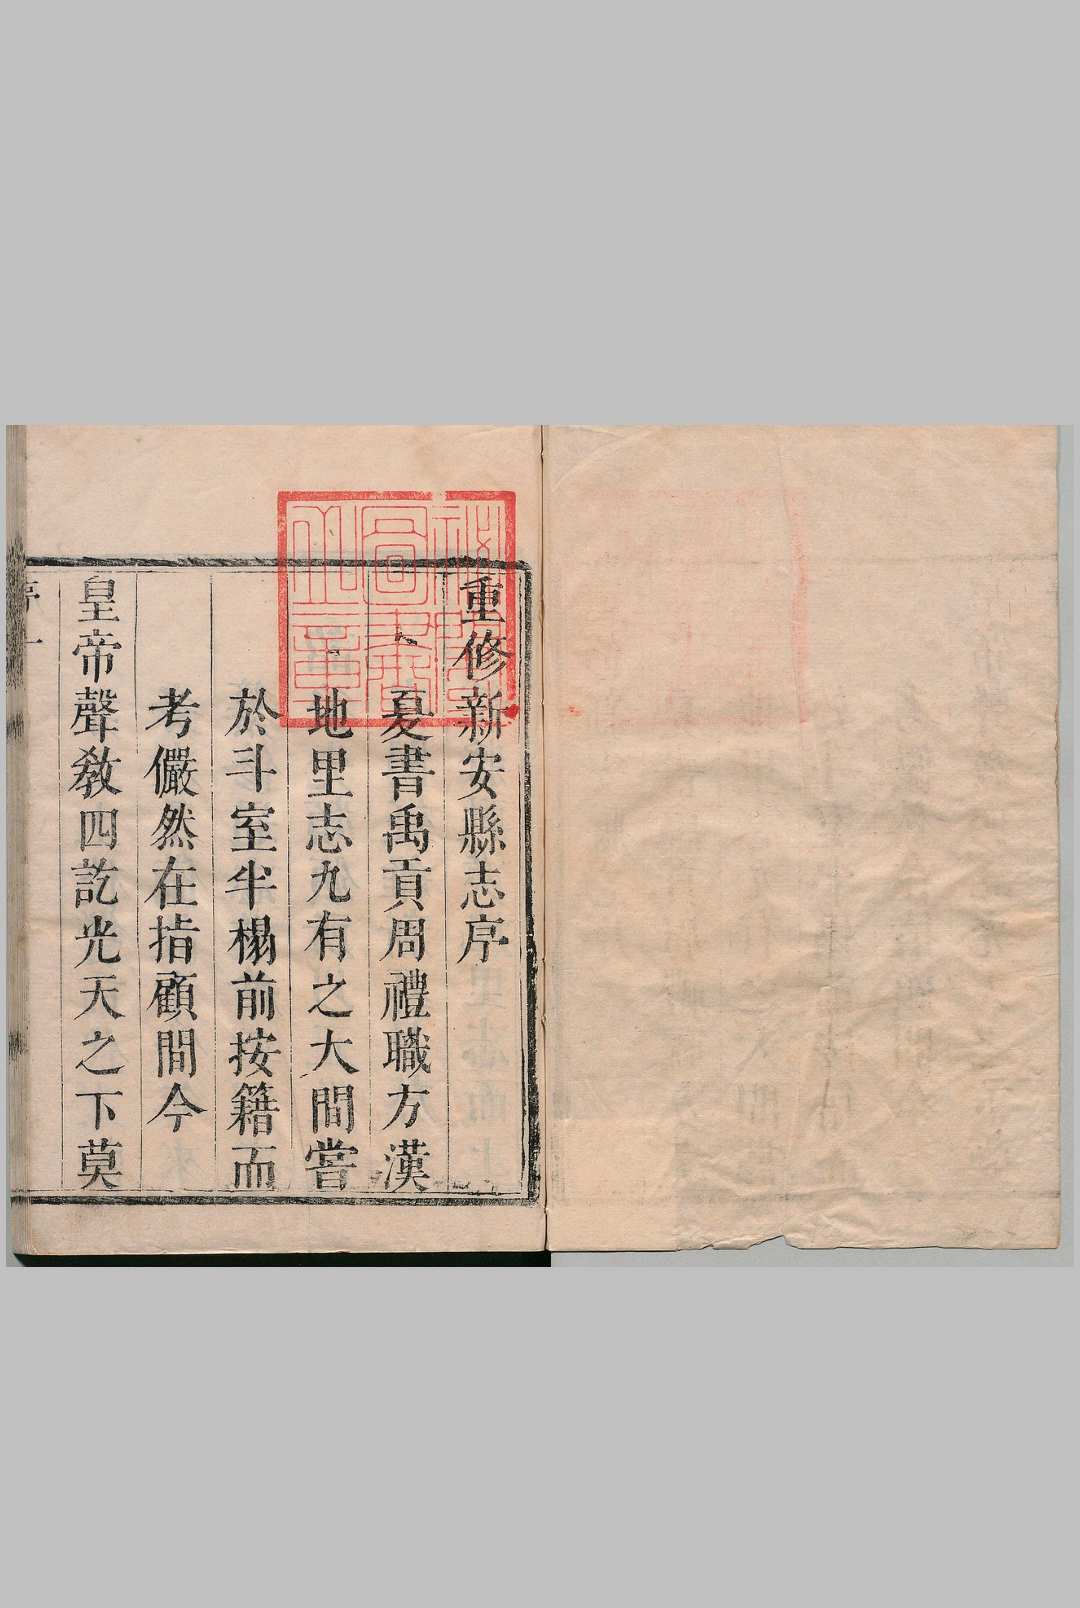 重修新安縣志序
夏書禹貢周禮職方漢
地里志九有之大間嘗
於斗室半榻前按籍而
考儼然在指顧間今
皇帝聲教四訖光天之下莫
序一